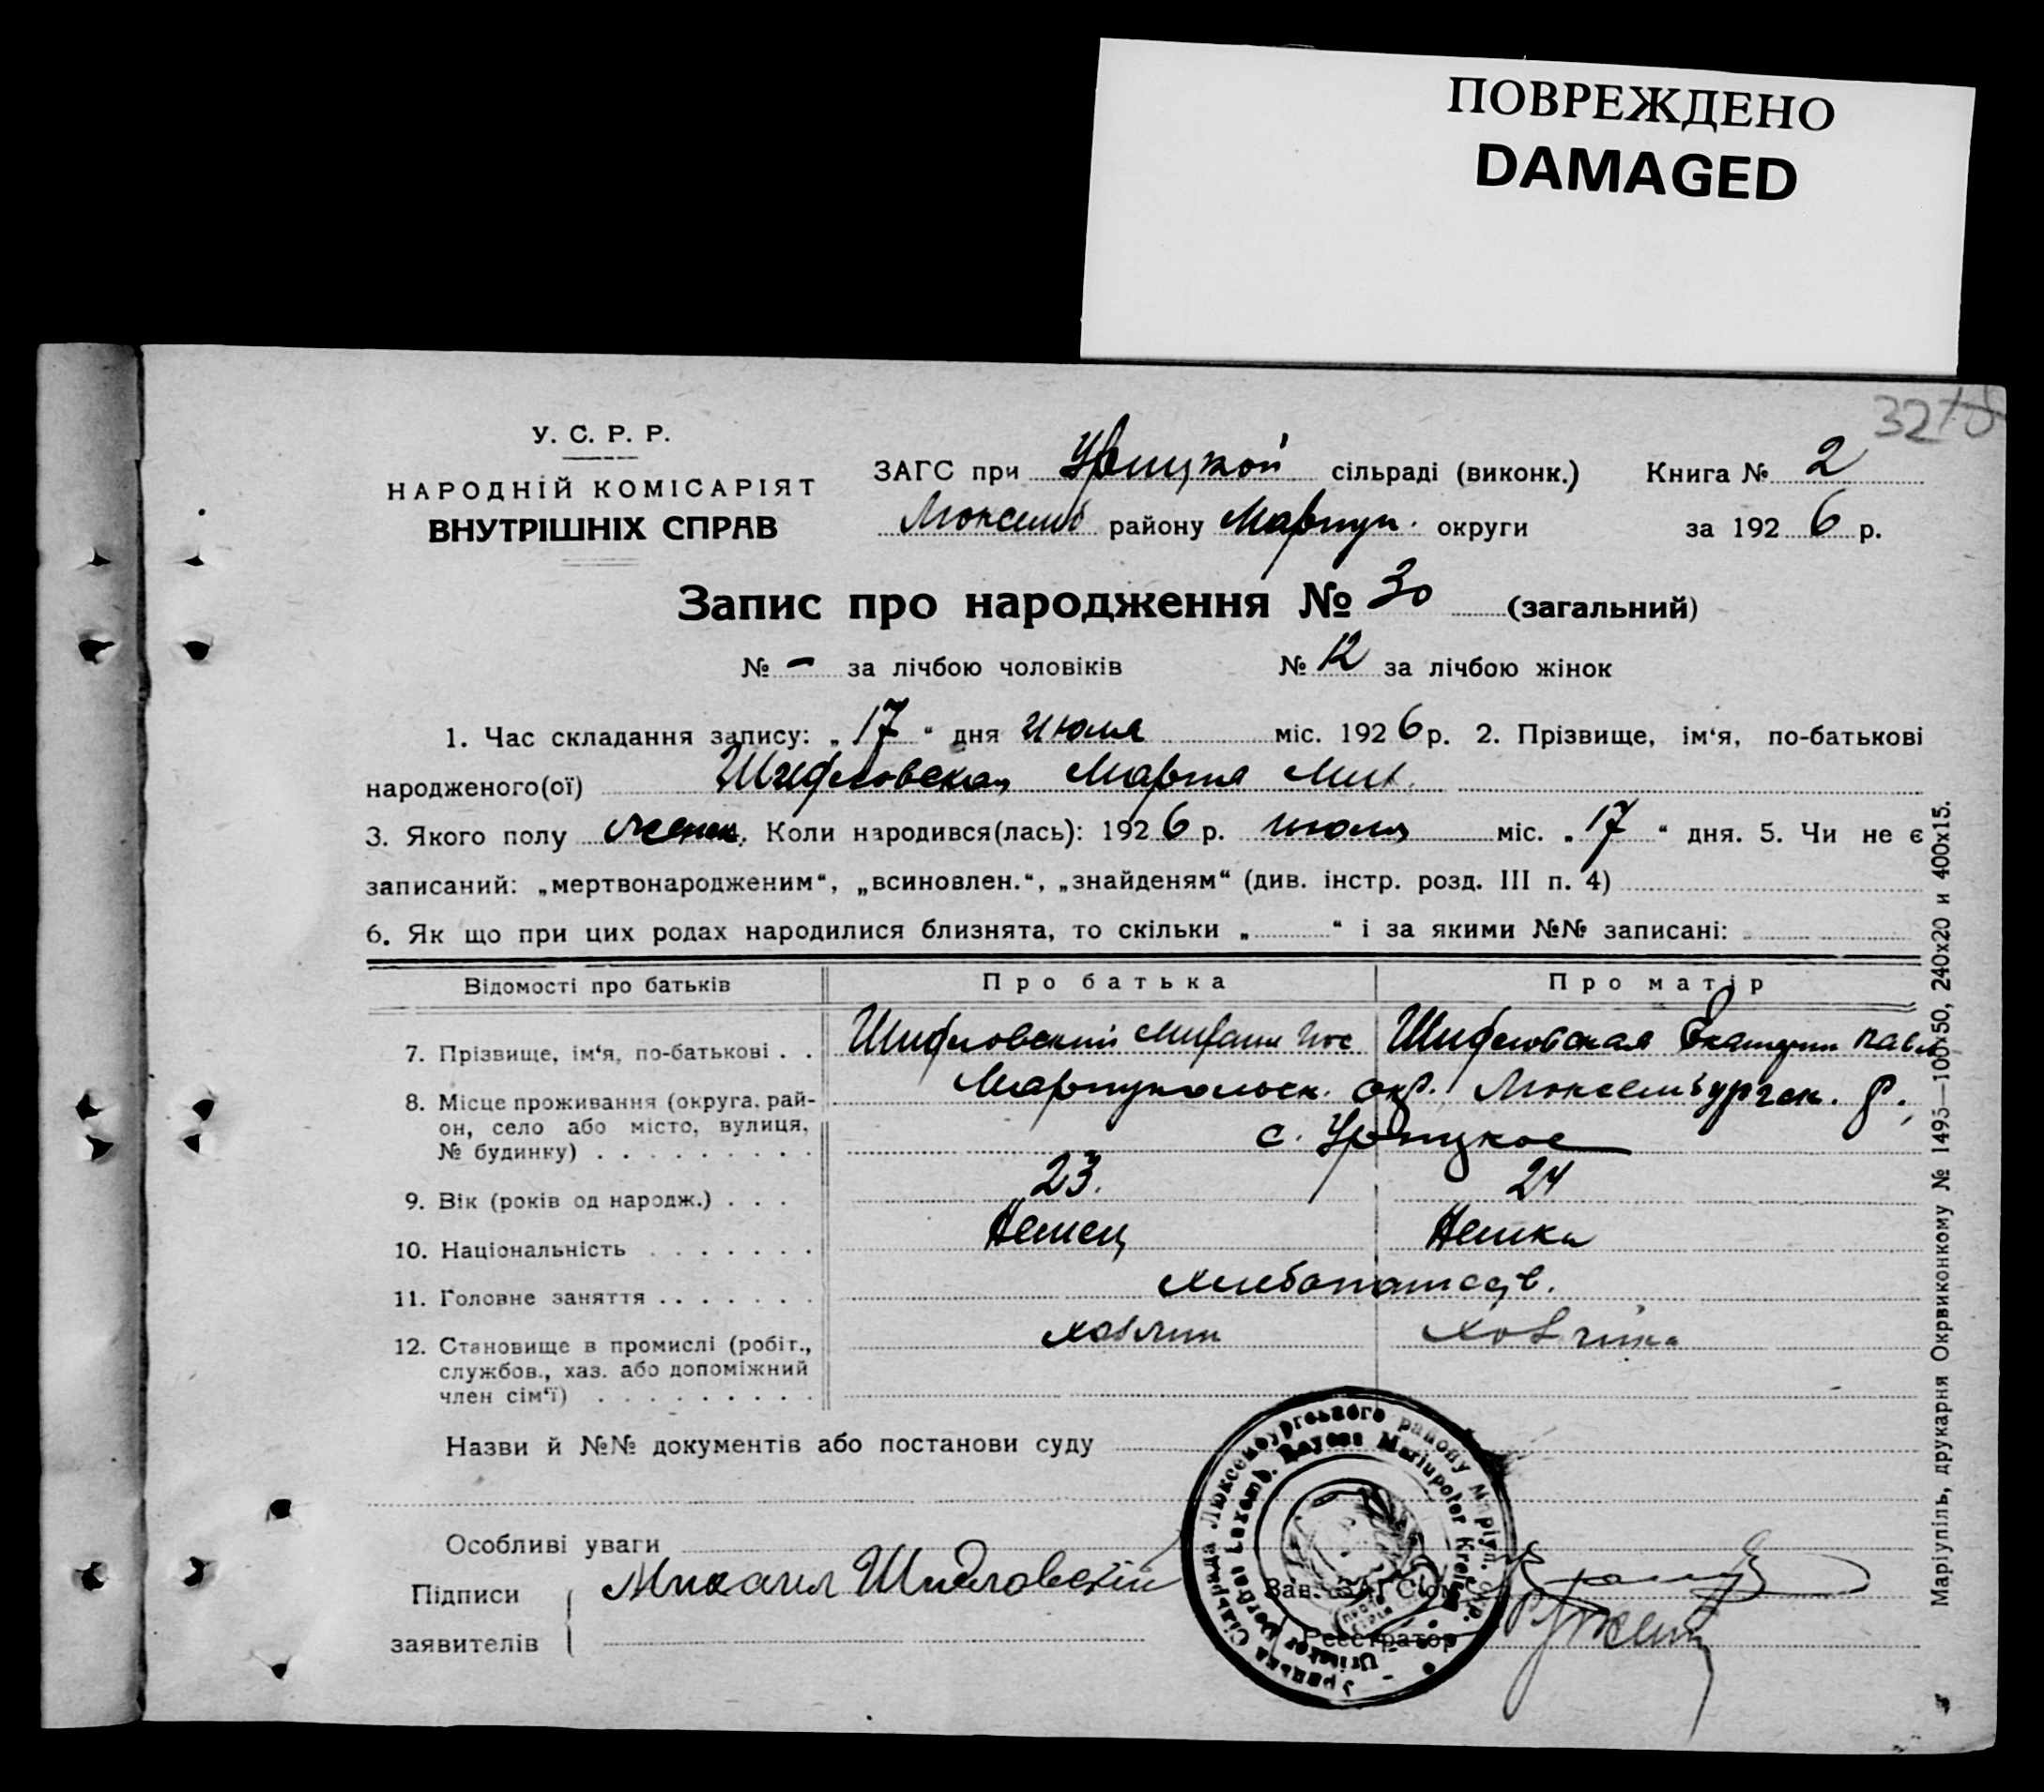 ПОВРЕЖДЕНО
DAMAGED
3278
У. С. Р. Р.
НАРОДНІЙ КОМІСАРІЯТ
ВНУТРІШНІХ СПРАВ
ЗАГС при Урицкой сільраді (виконк.) Книга № 2
Люксемб району Мариуп. округи за 1926 р.
Запис про народження № 30 (загальний)
№ - за лічбою чоловіків № 12 за лічбою жінок
1. Час складання запису: „17“ дня июля міс. 1926 р. 2. Прізвище, ім‘я, по-батькові
народженого(ої) Шидловская Мария Мих.
3. Якого полу женск. Коли народився(лась): 1926 р. июля міс. „17“ дня. 5. Чи не є
записаний: „мертвонародженим“, „всиновлен.“, „знайденям“ (див. інстр. розд. III п. 4)
6. Як що при цих родах народилися близнята, то скільки „ “ і за якими №№ записані:
Відомості про батьків Про батька Про матір
7. Прізвище, ім‘я, по-батькові . . Шидловский Михаил Иос Шидловская Екатерин Павл
8. Місце проживання (округа, рай- Мариупольск. окр. Люксембургск. р.,
он, село або місто, вулиця,
№ будинку) . . . . . . . . . с. Урицкое
9. Вік (років од народж.) . . . 23. 24
10. Національність . . . . . . . Немец Немка
11. Головне заняття . . . . . . . хлебопашеств.
12. Становище в промислі (робіт., хозяин хозяйка
службов., хаз. або допоміжний
член сім‘ї) . . . . . . . . .
Назви й №№ документів або постанови суду
Особливі уваги
Підписи Михаил Шидловский Зав. ЗАГС'ом
заявителів Реєстратор
Урицька Сільрада Люксембурґського району Маріуп. окр.
Uritzker Dorfrat Luxemb. Rayons Mariupoler Kreises
Маріупіль, друкарня Окрвиконкому № 1495—100х50, 240х20 и 400х15.